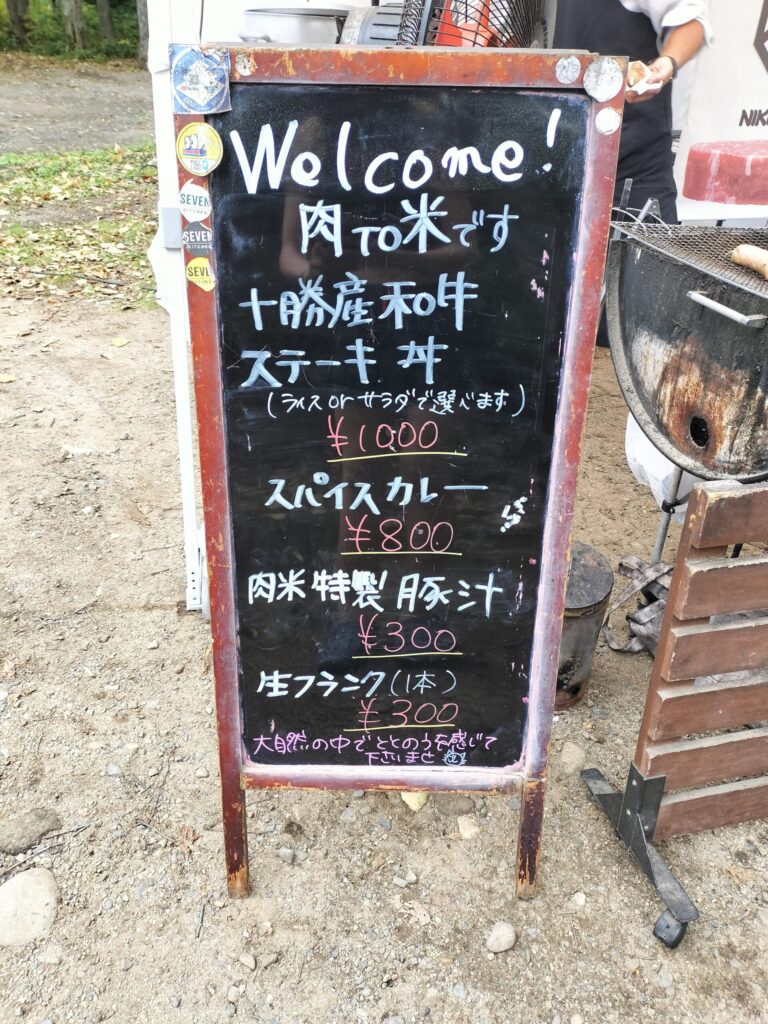 Welcome!
肉TO米です
十勝産和牛
ステーキ丼
(ライスorサラダで選べます)
¥1000
スパイスカレー
¥800
肉米特製豚汁
¥300
生フランク(1本)
¥300
大自然の中でととのうを感じて
下さいませ
SEVEN
KITCHEN
SEVEN
KITCHEN
SEVE
NIK